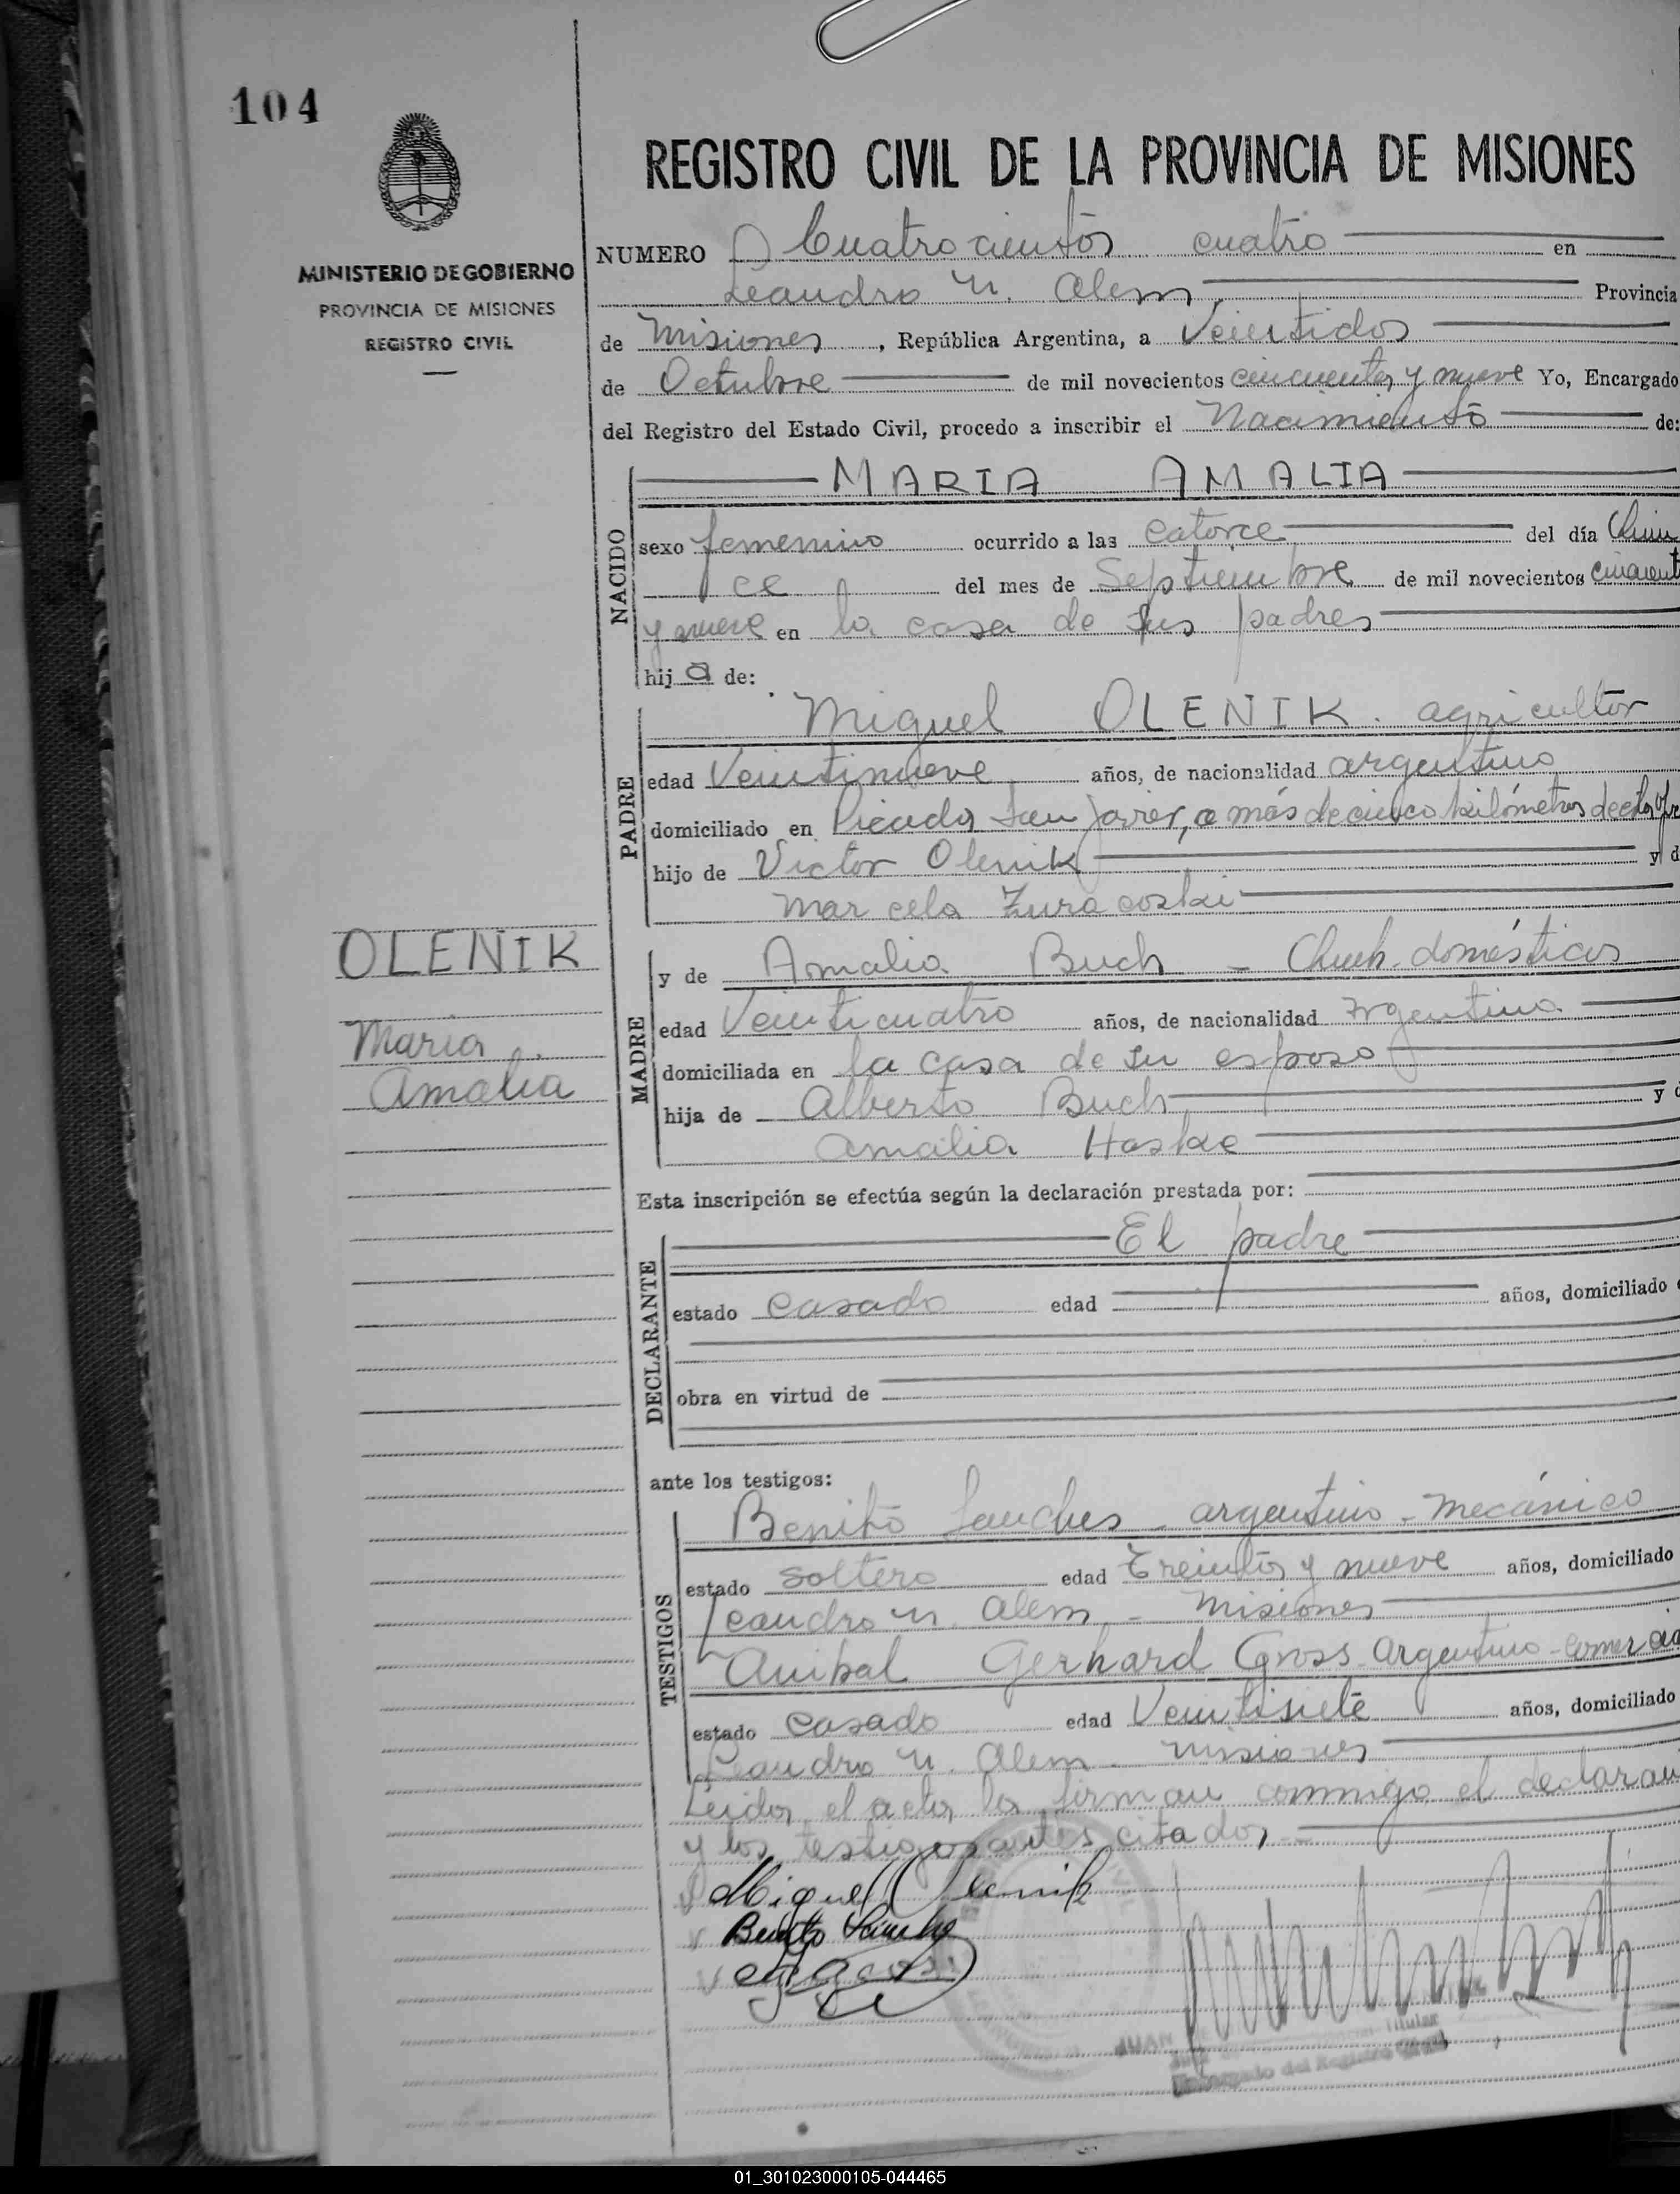 104
REGISTRO CIVIL DE LA PROVINCIA DE MISIONES
MINISTERIO DE GOBIERNO
PROVINCIA DE MISIONES
REGISTRO CIVIL
NUMERO Cuatrocientos cuatro en
Leandro N. Alem, Provincia
de Misiones, República Argentina, a Veintidos
de Octubre de mil novecientos cincuenta y nueve Yo, Encargado
del Registro del Estado Civil, procedo a inscribir el Nacimiento de:
NACIDO
MARIA AMALIA
sexo femenino ocurrido a las catorce del día Quin
ce del mes de Septiembre de mil novecientos cincuent
y nueve en la casa de sus padres
hij a de:
PADRE
Miguel OLENIK. agricultor
edad Veintinueve años, de nacionalidad argentino
domiciliado en Picada San Javier, a más de cinco kilómetros de esta
hijo de Victor Olenik y d
Marcela
OLENIK
Maria
Amalia
MADRE
y de Amalia Buch - domésticos
edad Veinticuatro años, de nacionalidad Argentina
domiciliada en la casa de su esposo
hija de Alberto Buch y
Amalia Haske
Esta inscripción se efectúa según la declaración prestada por:
DECLARANTE
El padre
estado casado edad años, domiciliado
obra en virtud de
ante los testigos:
TESTIGOS
Benito Sanches - argentino - mecánico
estado soltero edad Treinta y nueve años, domiciliado
Leandro N. Alem - Misiones
Anibal Gerhard Gross Argentino - comercia
estado casado edad Veintisiete años, domiciliado
Leandro N. Alem - Misiones
Leida el acta la firman conmigo el declaran
y los testigos antes citados
Miguel Olenik
Benito Sanche
JUAN
Titular
Encargado del Registro Civil
01_301023000105-044465